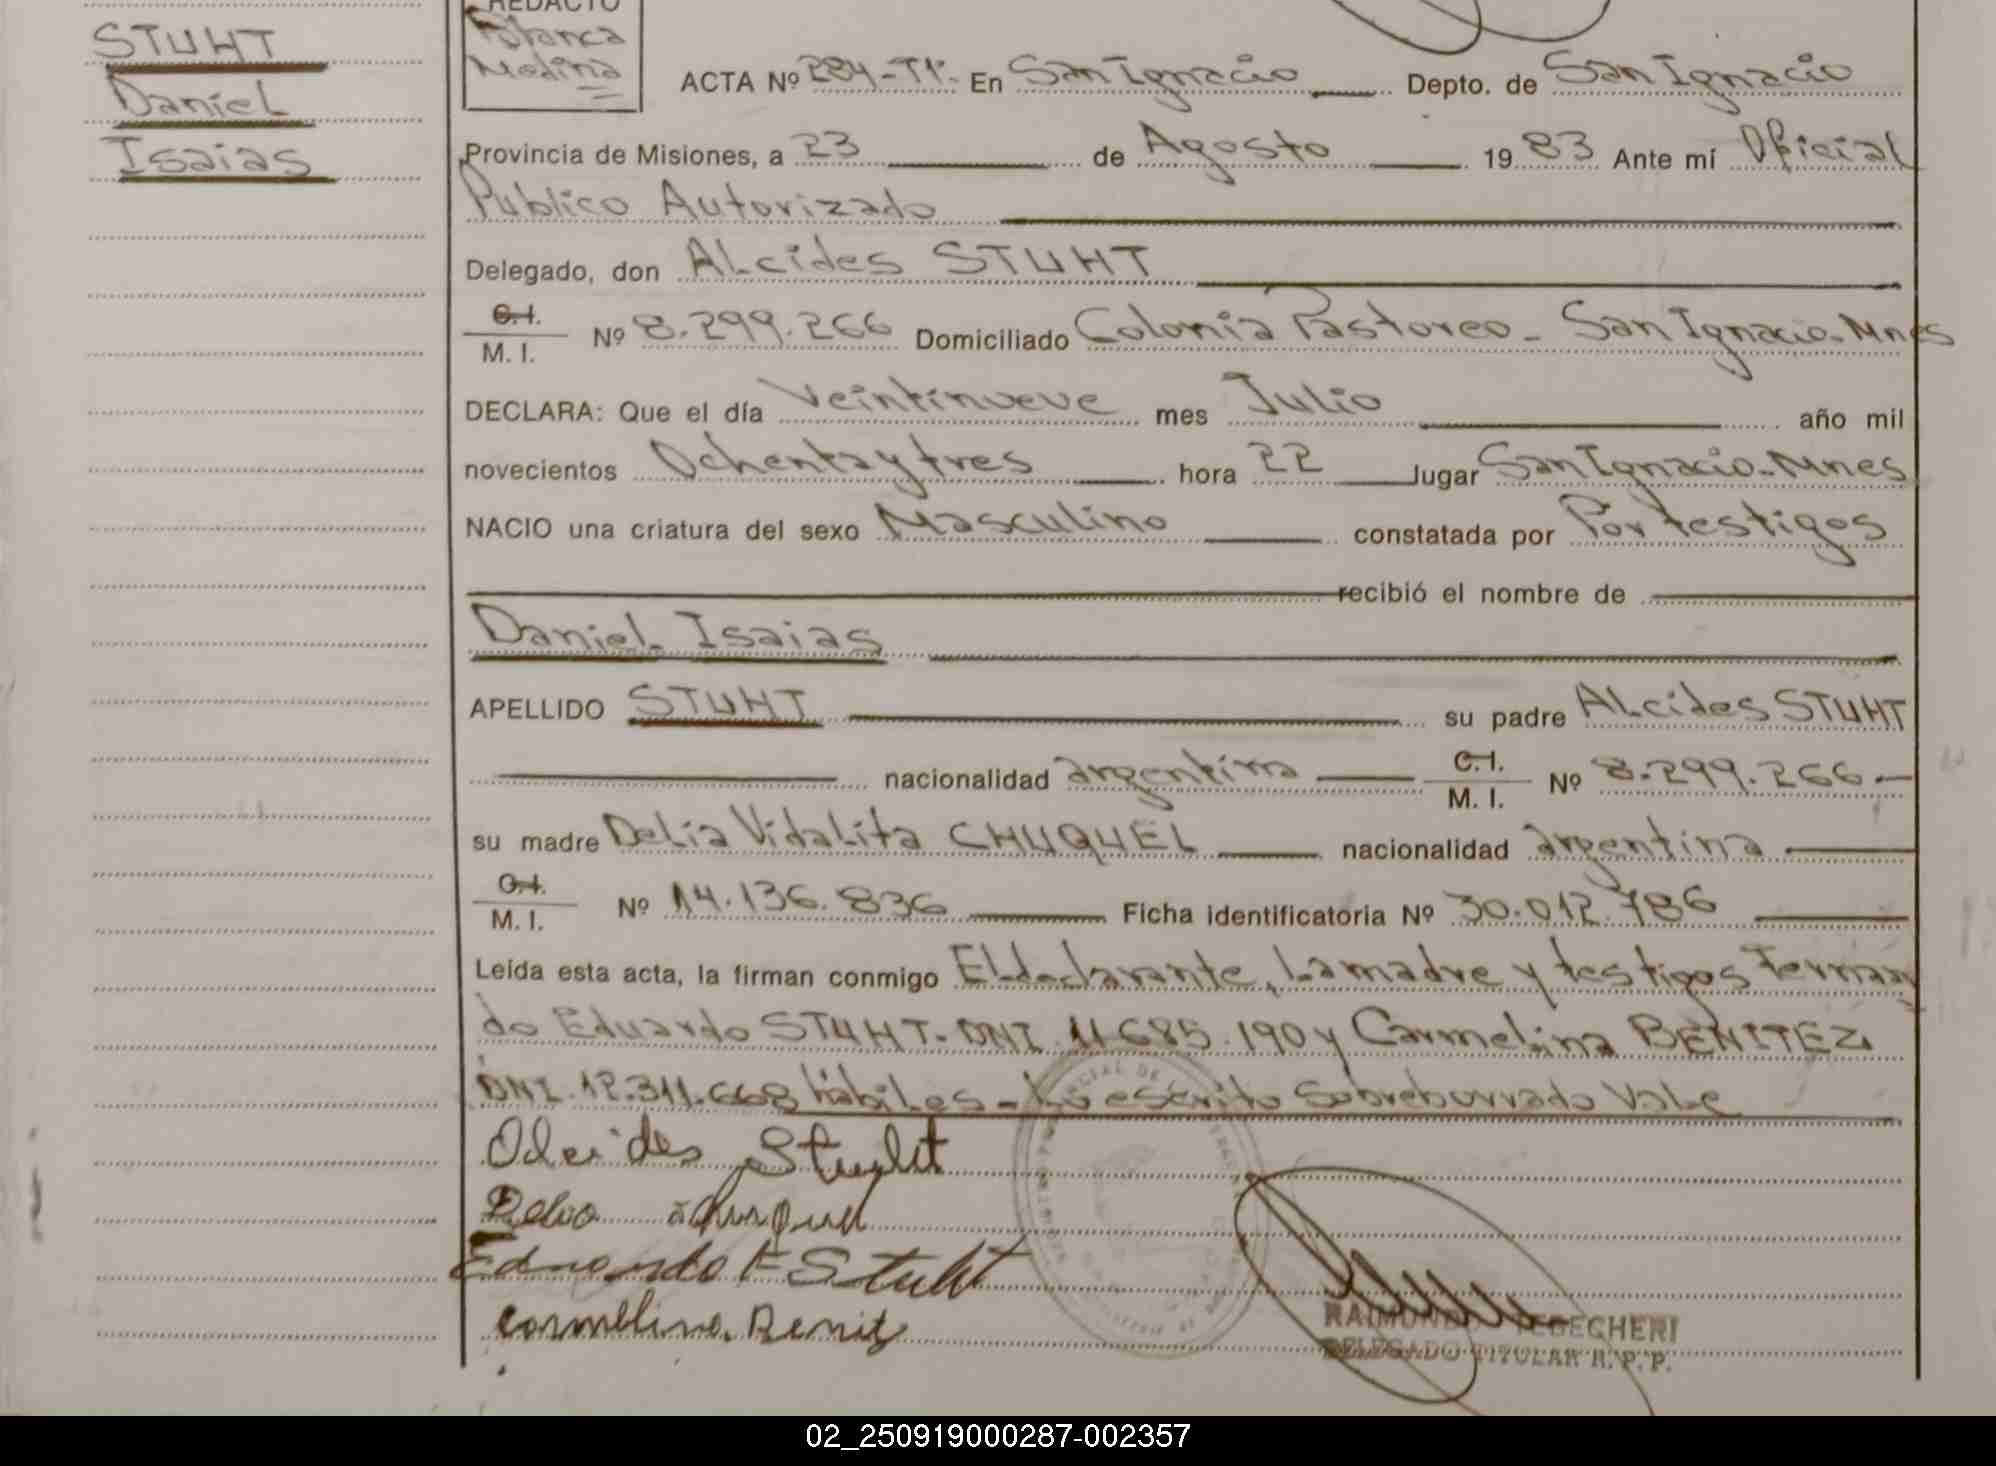 STUHT
Daniel
Isaias
REDACTO
Blanca
Medina
ACTA Nº 284-T1. En San Ignacio Depto. de San Ignacio
Provincia de Misiones, a 23 de Agosto 1983 Ante mí Oficial
Publico Autorizado
Delegado, don ALcides STUHT
C.I.
M. I. Nº 8.299.266 Domiciliado Colonia Pastoreo - San Ignacio-Mnes
DECLARA: Que el día Veintinueve mes Julio año mil
novecientos Ochenta y tres hora 22 lugar San Ignacio-Mnes
NACIO una criatura del sexo Masculino constatada por Por testigos
recibió el nombre de
Daniel Isaias
APELLIDO STUHT su padre ALcides STUHT
nacionalidad argentina C.I. M. I. Nº 8.299.266
su madre Delia Vidalita CHUQUEL nacionalidad argentina
C.I.
M. I. Nº 14.136.836 Ficha identificatoria Nº 30.012.786
Leída esta acta, la firman conmigo El declarante, La madre y testigos Fernan
do Eduardo STUHT- DNI 11.685.190 y Carmelina BENITEZ
DNI. 12.311.668 hábiles - Lo escrito Sobreborrado Vale
Alcides Stuht
Delia Chuquel
Eduardo F Stuht
Carmelina. Benitz
RAIMUNDO TEGECHERI
DELEGADO TITULAR R. P. P.
02_250919000287-002357